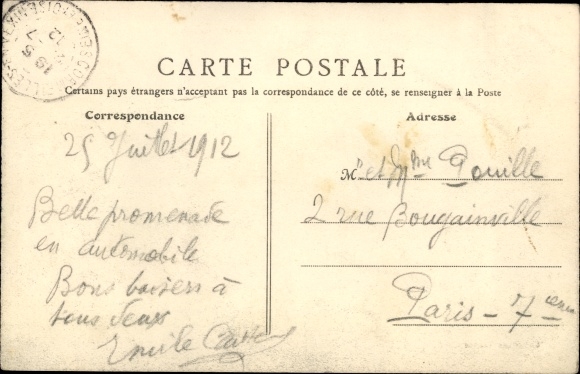 CARTE POSTALE
Certains pays étrangers n'acceptant pas la correspondance de ce côté, se renseigner à la Poste
Correspondance
25 Juillet 1912
Belle promenade
en automobile
Bons baisers à
tous deux
Emile
Adresse
Mr et Mme Pouille
2 rue Bougainville
Paris - 7ème